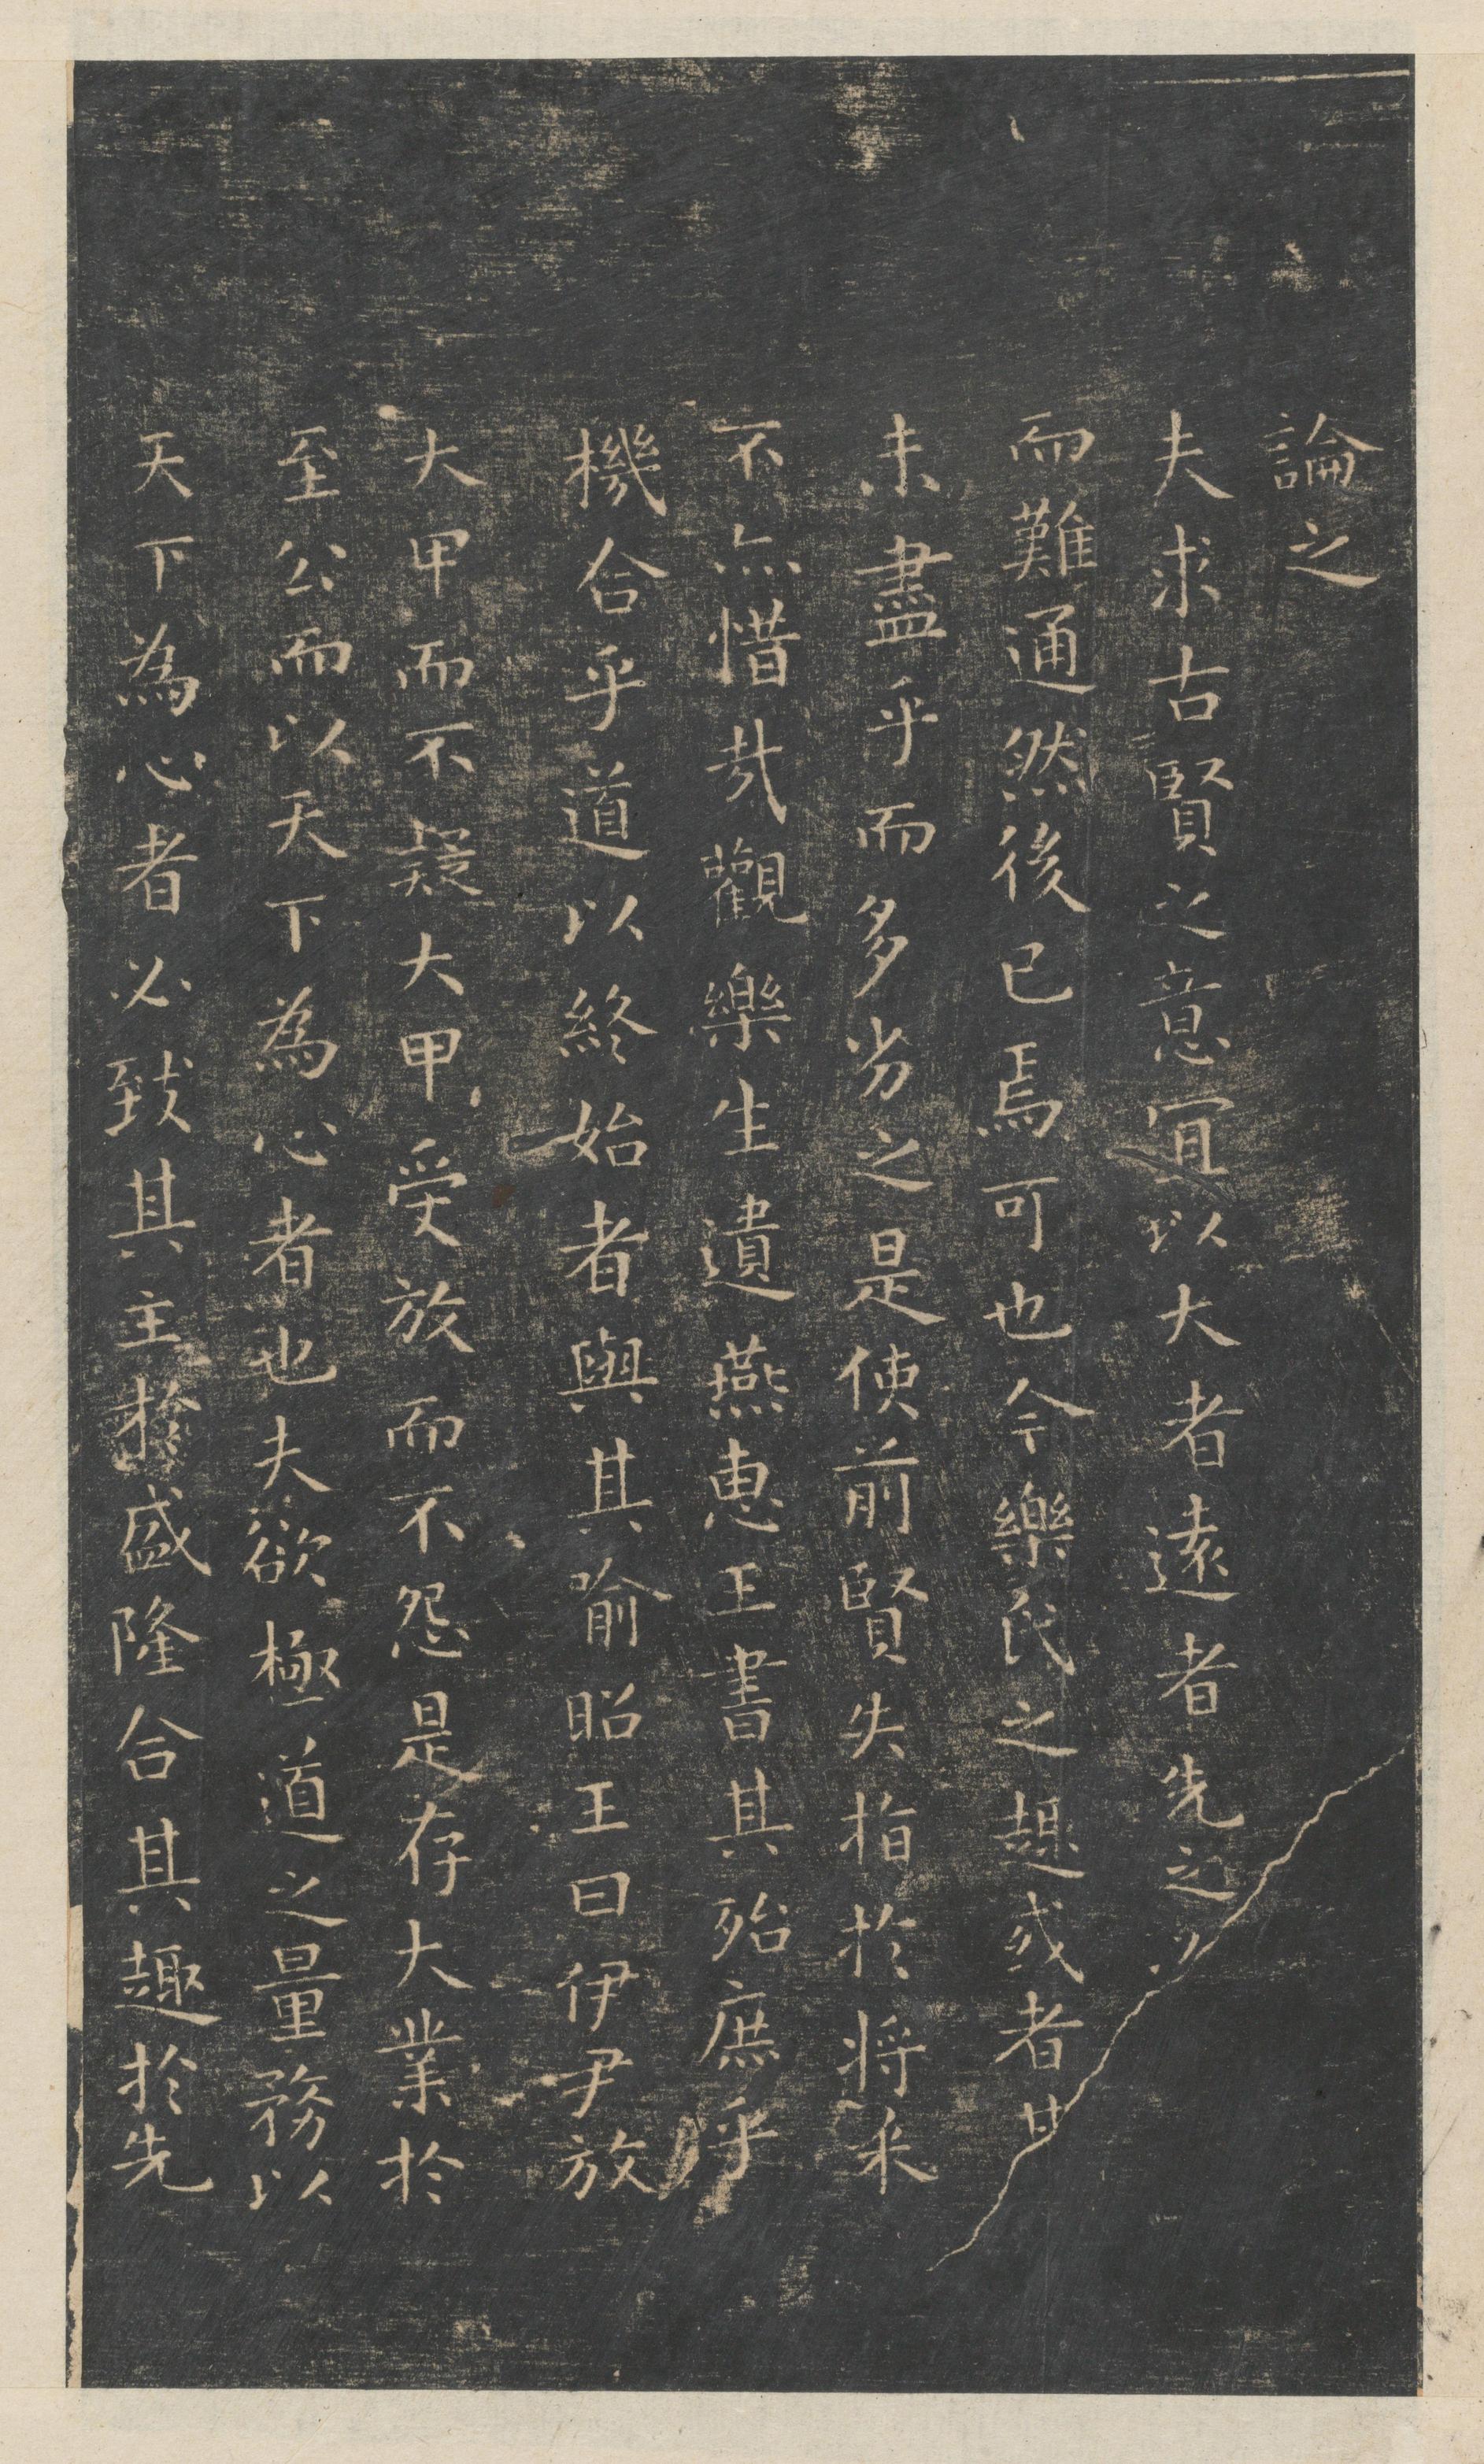 論之
夫求古賢之意宜以大者遠者先之必
而難通然後已焉可也今樂氏之趣或者其
未盡乎而多劣之是使前賢失指於將来
不亦惜哉觀樂生遺燕惠王書其殆庶乎
機合乎道以終始者與其喻昭王曰伊尹放
大甲而不疑大甲受放而不怨是存大業於
至公而以天下為心者也夫欲極道之量務以
天下為心者必致其主於盛隆合其趣於先